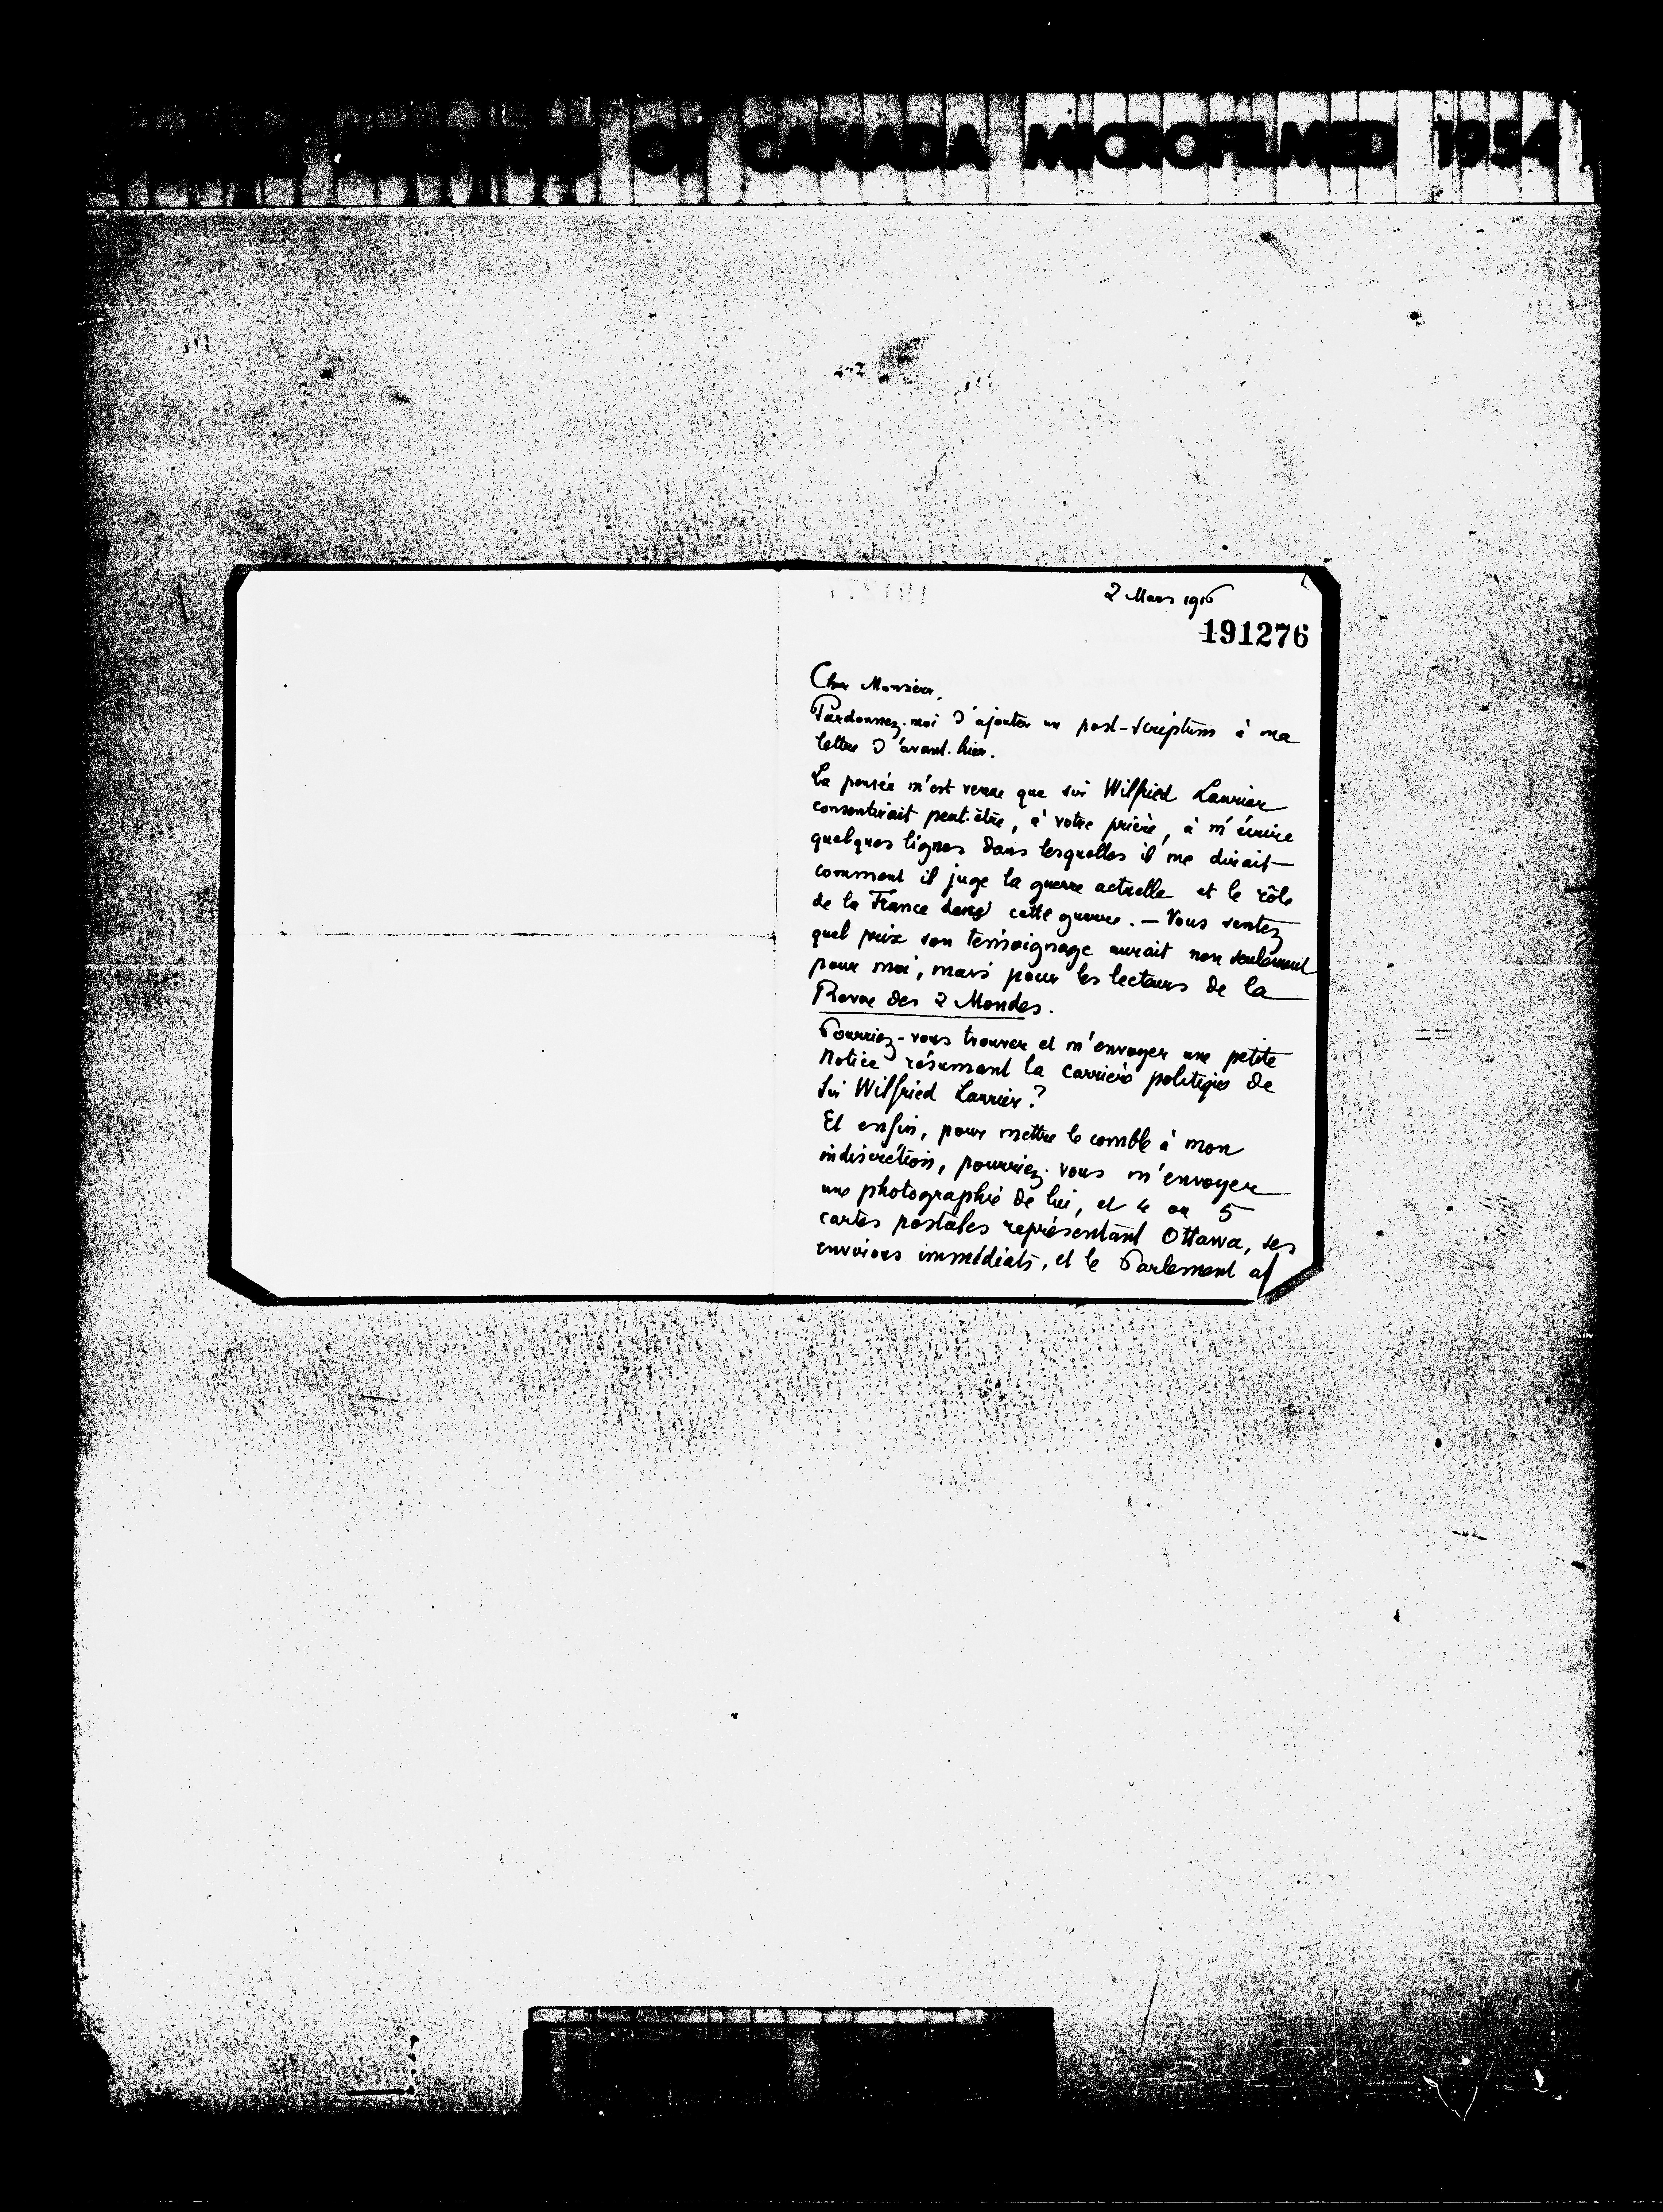 OF CANADA MICROFILMED 1954
2 Mars 1916
191276
Cher Monsieur,
Pardonnez-moi d'ajouter un post-scriptum à ma
lettre d'avant-hier.
La pensée m'est venue que sir Wilfried Laurier
consentirait peut-être, à votre prière, à m'écrire
quelques lignes dans lesquelles il me dirait
comment il juge la guerre actuelle et le rôle
de la France dans cette guerre. — Vous sentez
quel prix son témoignage aurait non seulement
pour moi, mais pour les lecteurs de la
Revue des 2 Mondes.
Pourriez-vous trouver et m'envoyer une petite
Notice résumant la carrière politique de
Sir Wilfried Laurier?
Et enfin, pour mettre le comble à mon
indiscrétion, pourriez-vous m'envoyer
une photographie de lui, et 4 ou 5
cartes postales représentant Ottawa, ses
environs immédiats, et le Parlement